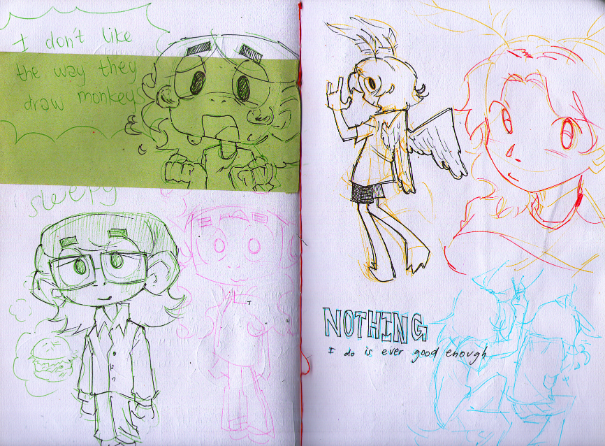 I don't like
the way they
draw monkey
sleepy
NOTHING
I do is ever good enough